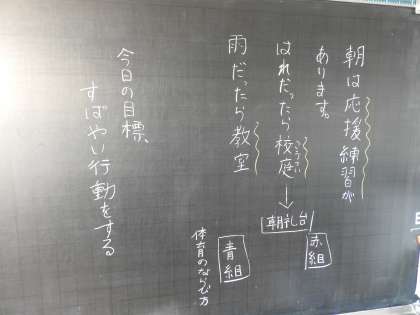 朝は応援練習が
あります。
はれだったら校庭→
こうてい
朝礼台
赤組
青組
体育のならび方
雨だったら教室
今日の目標、
すばやい行動をする